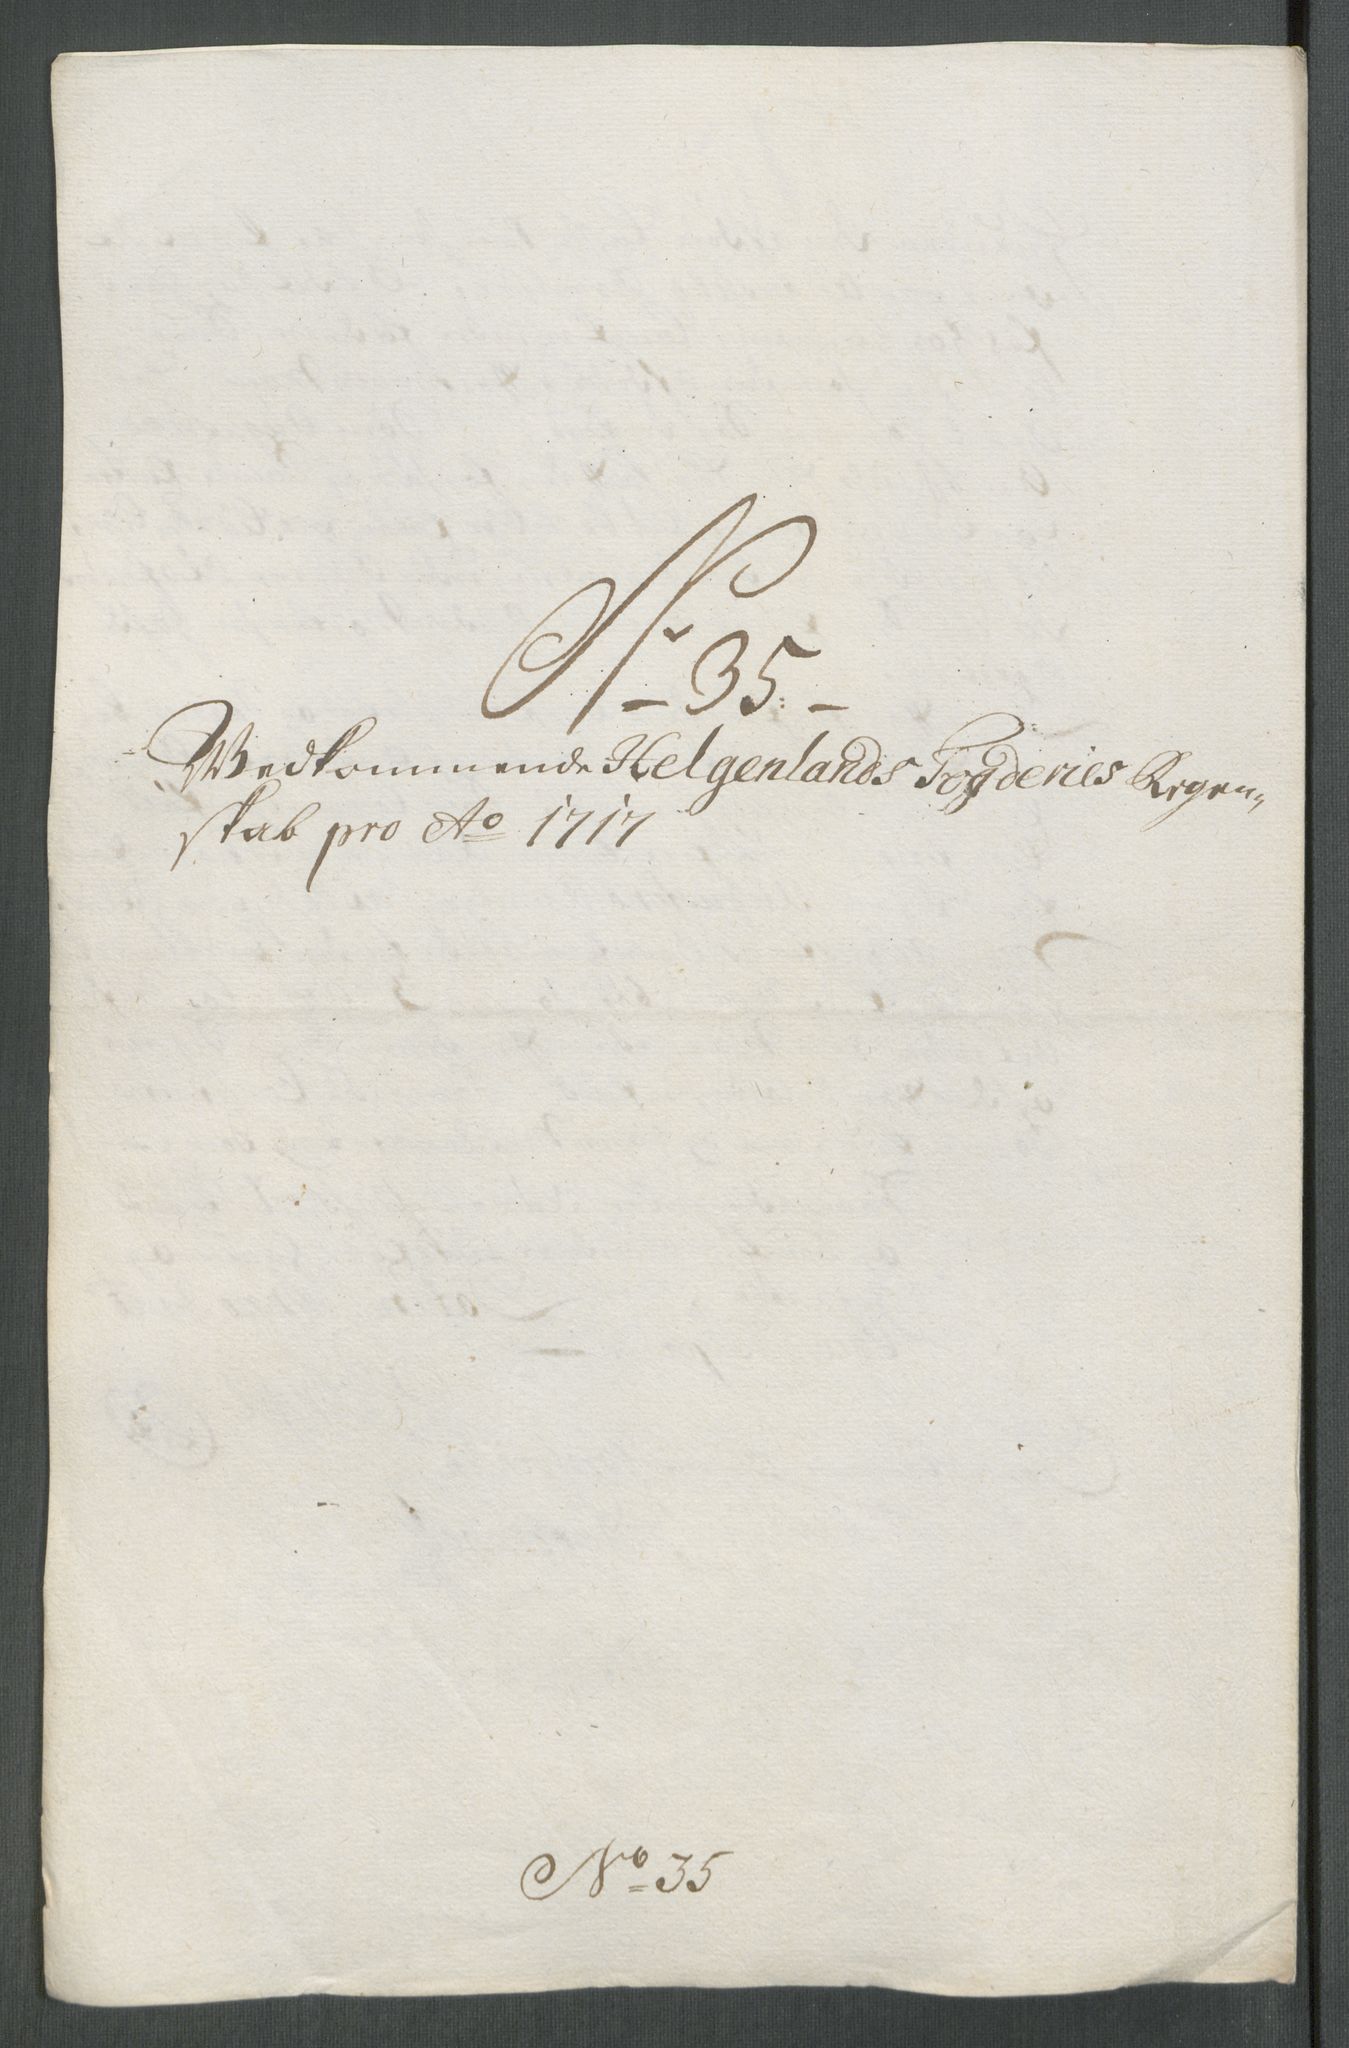 No 35.
Wedkommende Helgenlands Fogderies Regen-
skab pro Ao 1717
No 35